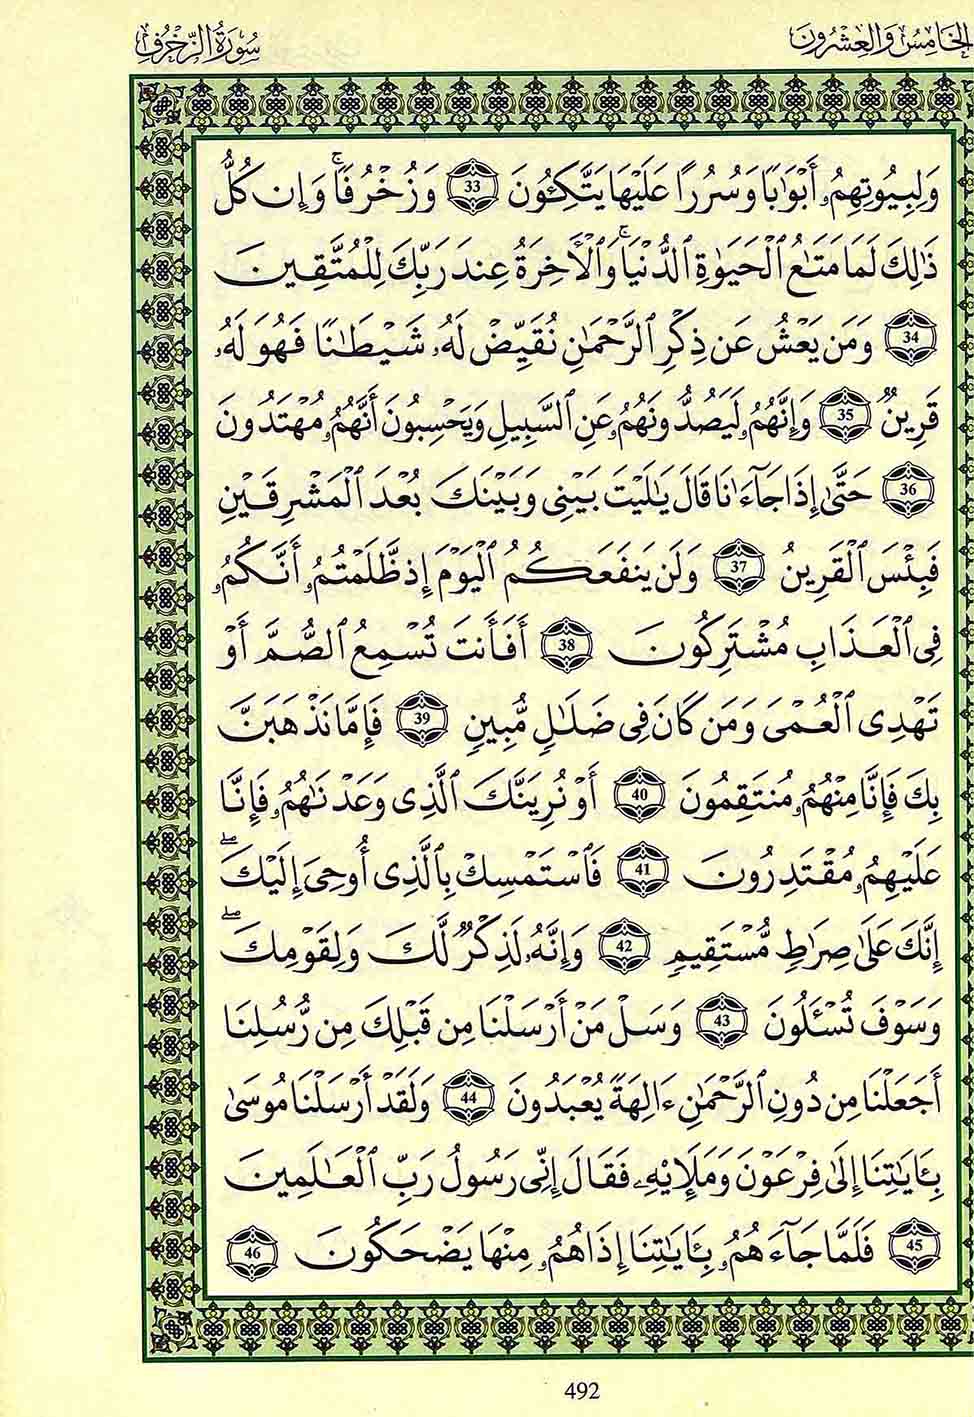 الخامس والعشرون
سورة الزخرف
وَلِبِيُوتِهِمُۥ أَبۡوَٰبٗا وَسُرُرًا عَلَيۡهَا يَتَّكِـُٔونَ 33 وَزُخۡرُفٗاۚ وَإِن كُلُّ
ذَٰلِكَ لَمَا مَتَٰعُ ٱلۡحَيَوٰةِ ٱلدُّنۡيَاۚ وَٱلۡأٓخِرَةُ عِندَ رَبِّكَ لِلۡمُتَّقِينَ
34 وَمَن يَعۡشُ عَن ذِكۡرِ ٱلرَّحۡمَٰنِ نُقَيِّضۡ لَهُۥ شَيۡطَٰنٗا فَهُوَ لَهُۥ
قَرِينٞ 35 وَإِنَّهُمُۥ لَيَصُدُّونَهُمُۥ عَنِ ٱلسَّبِيلِ وَيَحۡسِبُونَ أَنَّهُمُۥ مُهۡتَدُونَ
36 حَتَّىٰٓ إِذَا جَآءَٰنَا قَالَ يَٰلَيۡتَ بَيۡنِي وَبَيۡنَكَ بُعۡدَ ٱلۡمَشۡرِقَيۡنِ
فَبِئۡسَ ٱلۡقَرِينُ 37 وَلَن يَنفَعَكُمُ ٱلۡيَوۡمَ إِذ ظَّلَمۡتُمُۥ أَنَّكُمُۥ
فِي ٱلۡعَذَابِ مُشۡتَرِكُونَ 38 أَفَأَنتَ تُسۡمِعُ ٱلصُّمَّ أَوۡ
تَهۡدِي ٱلۡعُمۡيَ وَمَن كَانَ فِي ضَلَٰلٖ مُّبِينٖ 39 فَإِمَّا نَذۡهَبَنَّ
بِكَ فَإِنَّا مِنۡهُمُۥ مُنتَقِمُونَ 40 أَوۡ نُرِيَنَّكَ ٱلَّذِي وَعَدۡنَٰهُمُۥ فَإِنَّا
عَلَيۡهِمُۥ مُقۡتَدِرُونَ 41 فَٱسۡتَمۡسِكۡ بِٱلَّذِي أُوحِيَ إِلَيۡكَۖ
إِنَّكَ عَلَىٰ صِرَٰطٖ مُّسۡتَقِيمٖ 42 وَإِنَّهُۥ لَذِكۡرٞ لَّكَ وَلِقَوۡمِكَۖ
وَسَوۡفَ تُسۡـَٔلُونَ 43 وَسَلۡ مَنۡ أَرۡسَلۡنَا مِن قَبۡلِكَ مِن رُّسُلِنَا
أَجَعَلۡنَا مِن دُونِ ٱلرَّحۡمَٰنِ ءَالِهَةٗ يُعۡبَدُونَ 44 وَلَقَدۡ أَرۡسَلۡنَا مُوسَىٰ
بِـَٔايَٰتِنَا إِلَىٰ فِرۡعَوۡنَ وَمَلَإِيْهِۦ فَقَالَ إِنِّي رَسُولُ رَبِّ ٱلۡعَٰلَمِينَ
45 فَلَمَّا جَآءَهُمُۥ بِـَٔايَٰتِنَا إِذَا هُمُۥ مِنۡهَا يَضۡحَكُونَ 46
492